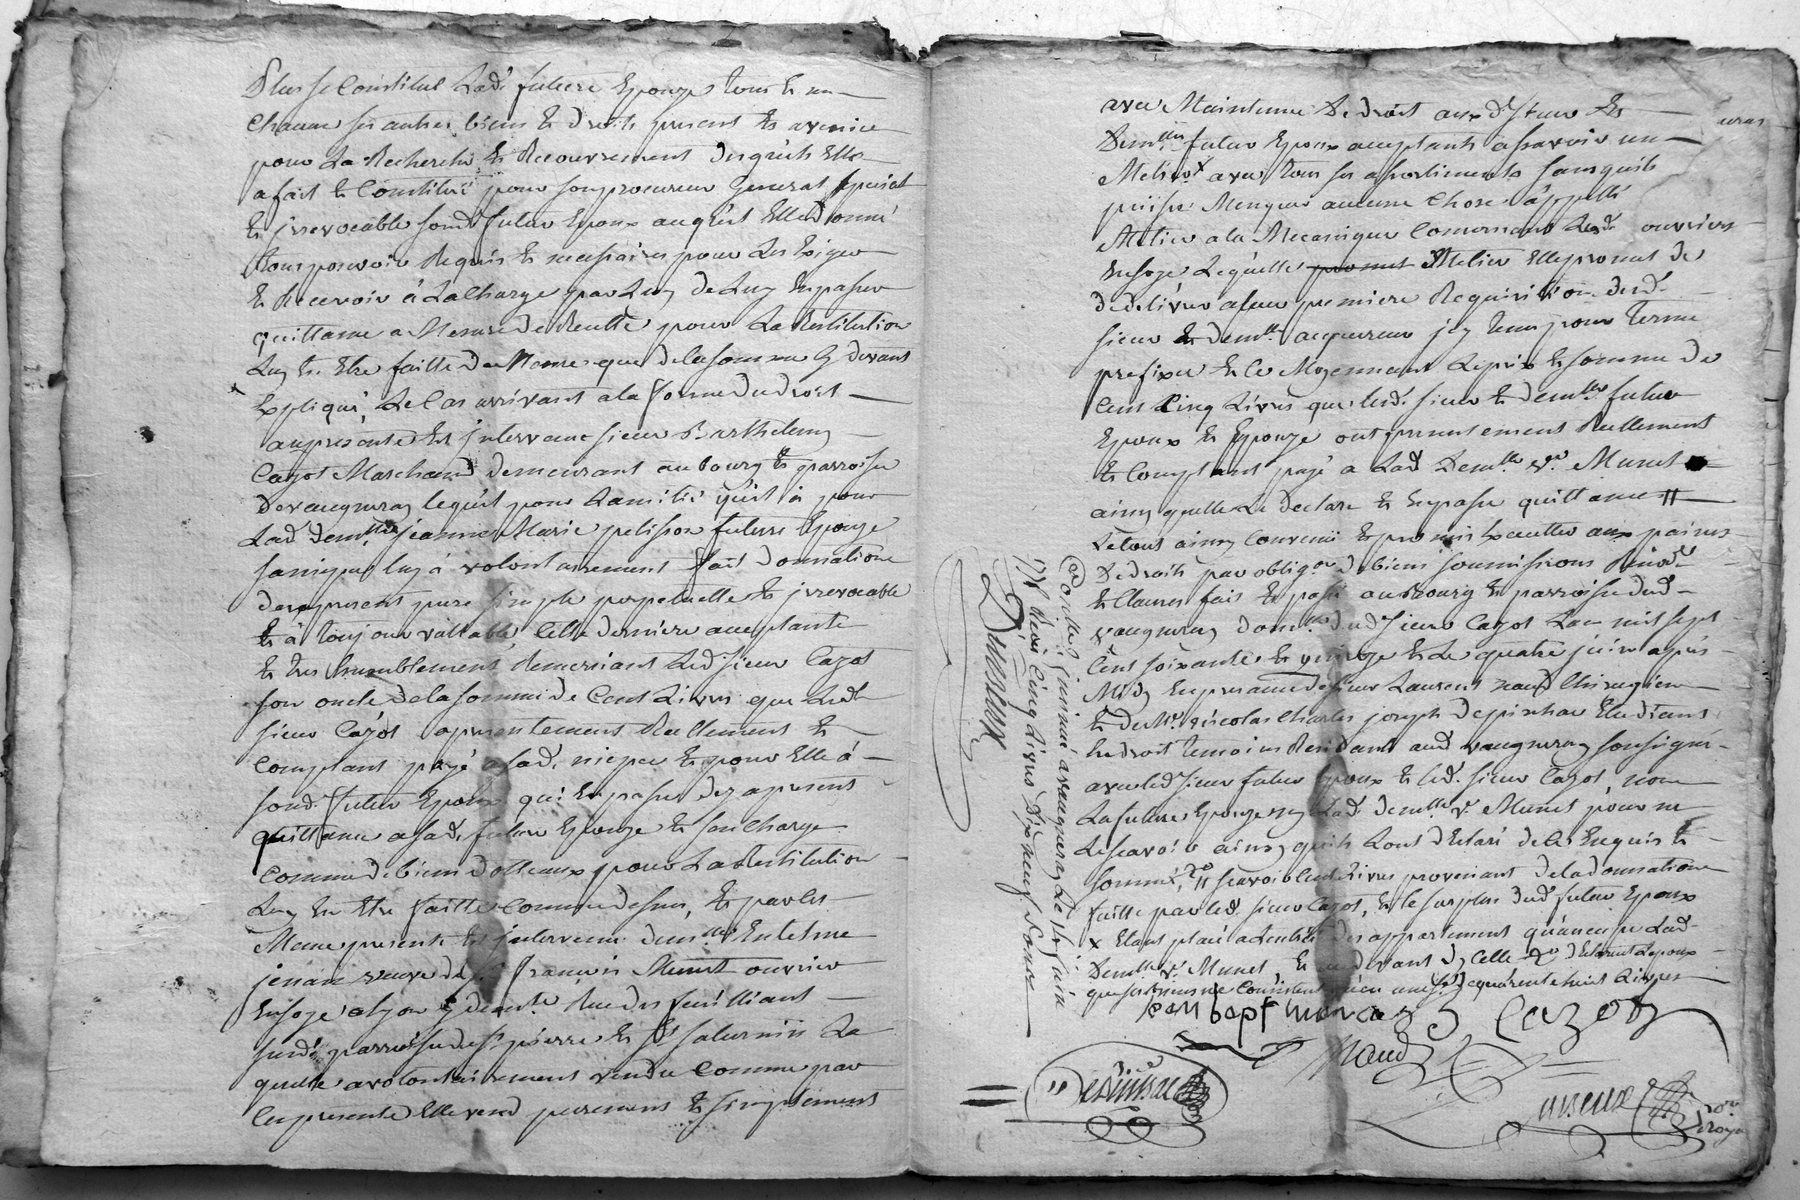 Plus se Constitue Lad. future Epouze tous Et un
Chacun ses autres biens Et droits present Et avenir
pour La Recherche Et Recouvrement desquels Elle
a fait Et Constitué pour son procureur General special
Et jrrevocable sond. futur Epoux auquel Elle donne
tous pouvoir Requis Et necessaires pour Les Exiger
Et Recevoir à La Charge par Luy de Luy En passer
quittance a Mesure de Recette pour La Restitution
Luy En Etre faitte de Meme que de la somme Cy devant
Expliqué, Le Cas arrivant a la forme du droit
au present Est jntervenu sieur Barthelemy
Cazot Marchand demeurant au bourg Et parroisse
de vaugneray lequel pour Lamitié qu'il à pour
Lad. Demlle jeanne Marie pelisson future Epouze
sa niepce luy à volontairement fait donnation
des apresent pure simple perpetuelle Et jrrevocable
Et à toujours vallable Cette derniere acceptante
Et tres humblement Remerciant Led. sieur Cazot
son oncle de la somme de Cent Livres que Led.
sieur Cazot a presentement Reellement Et
Comptant payé a sad. niepce Et pour Elle à
sond. futur Epoux qui En passe dez apresent
quittance a sad. future Epouze Et s'en Charge
Comme de biens dotteaux pour La Restitution
Luy En Etre faitte Comme dessus, Et par les
Meme presente Est jntervenue demlle
veuve de Sr. francois Munet ouvrier
En soye a lyon y demte. Rue des feuilliant
susd. parroisse de St. pierre Et St. saturnin La
quelle a volontairement vendu Comme par
Ces presente Elle vend purement Et simplement
avec Maintenue De droit aux d. sieur Et
Demlle futur Epoux acceptants a scavoir un
Metier X avec tous ses assortiments sans qu'il
puisse Manquer aucune Chose appellé
Metier a la Mecanique Concernant Led. ouvriers
En soye Lequelle promet Metier Elle promet de
de delivrer a leur premiere Requisition desd.
sieur Et demlle acquereur
prefixe Et Ce Moyennant Le prix Et somme de
Cent Cinq Livres que lesd. sieur Et demlle futur
Epoux Et Epouze ont presentement Reellement
Et Comptant payé a Lad. Demlle ve. Munet
ainsy quelle Le declare Et En passe quittance
Le tout ainsy Convenu Et promis Executter aux peines
De droits par obligon. de biens soumissions Renond.
Et Clauses fait Et passé au bourg Et parroisse dud.
vaugneray domlle dud. sieur Cazot Lan mil sept
Cent soixante Et quinze Et Le quatre juin après
Midy En presence de sieur Laurent naud Chirugien
Et de Mr. nicolas Charles joseph depinchac Etudiant
En droit temoins Residant aud. vaugneray soussigné
avec led. sieur futur Epoux Et led. sieur Cazot, non
La future Epouze ny Lad. demlle ve. Munet pour ne
Le scavoir ainsy qu'ils L'ont declaré de Ce Enquis Et
sommé, scavoir Cent Livres provenant de la donnation
faitte par led. sieur Cazot, Et le surplus dud. futur Epoux
X Etant placé a des appartement qu'occupe Lad.
Demlle ve. Munet,
Controllé a vaugneray Le 14 juin
1775 Recu Cinq Livres dix neuf
Duvreux
Cazot
naud